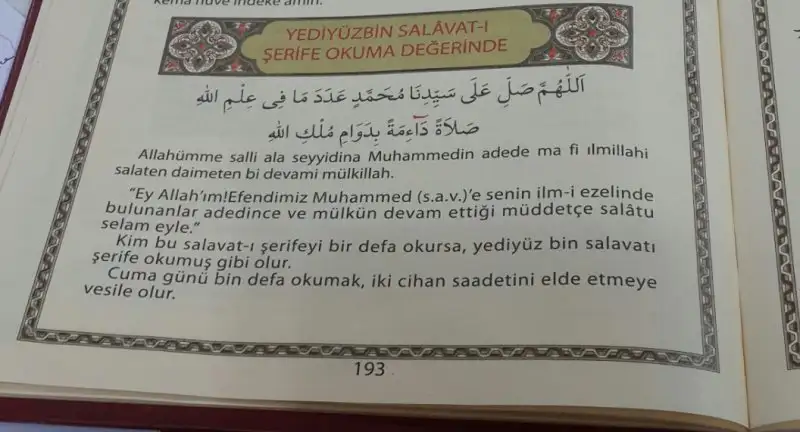 kema hüve indeke amin.
YEDİYÜZBİN SALÂVAT-I
ŞERİFE OKUMA DEĞERİNDE
اَللّٰهُمَّ صَلِّ عَلَى سَيِّدِنَا مُحَمَّدٍ عَدَدَ مَا فِى عِلْمِ اللّٰهِ
صَلاَةً دَاۤءِمَةً بِدَوَامِ مُلْكِ اللّٰهِ
Allahümme salli ala seyyidina Muhammedin adede ma fi ılmillahi
salaten daimeten bi devami mülkillah.
"Ey Allah'ım!Efendimiz Muhammed (s.a.v.)'e senin ilm-i ezelinde
bulunanlar adedince ve mülkün devam ettiği müddetçe salâtu
selam eyle."
Kim bu salavat-ı şerifeyi bir defa okursa, yediyüz bin salavatı
şerife okumuş gibi olur.
Cuma günü bin defa okumak, iki cihan saadetini elde etmeye
vesile olur.
193